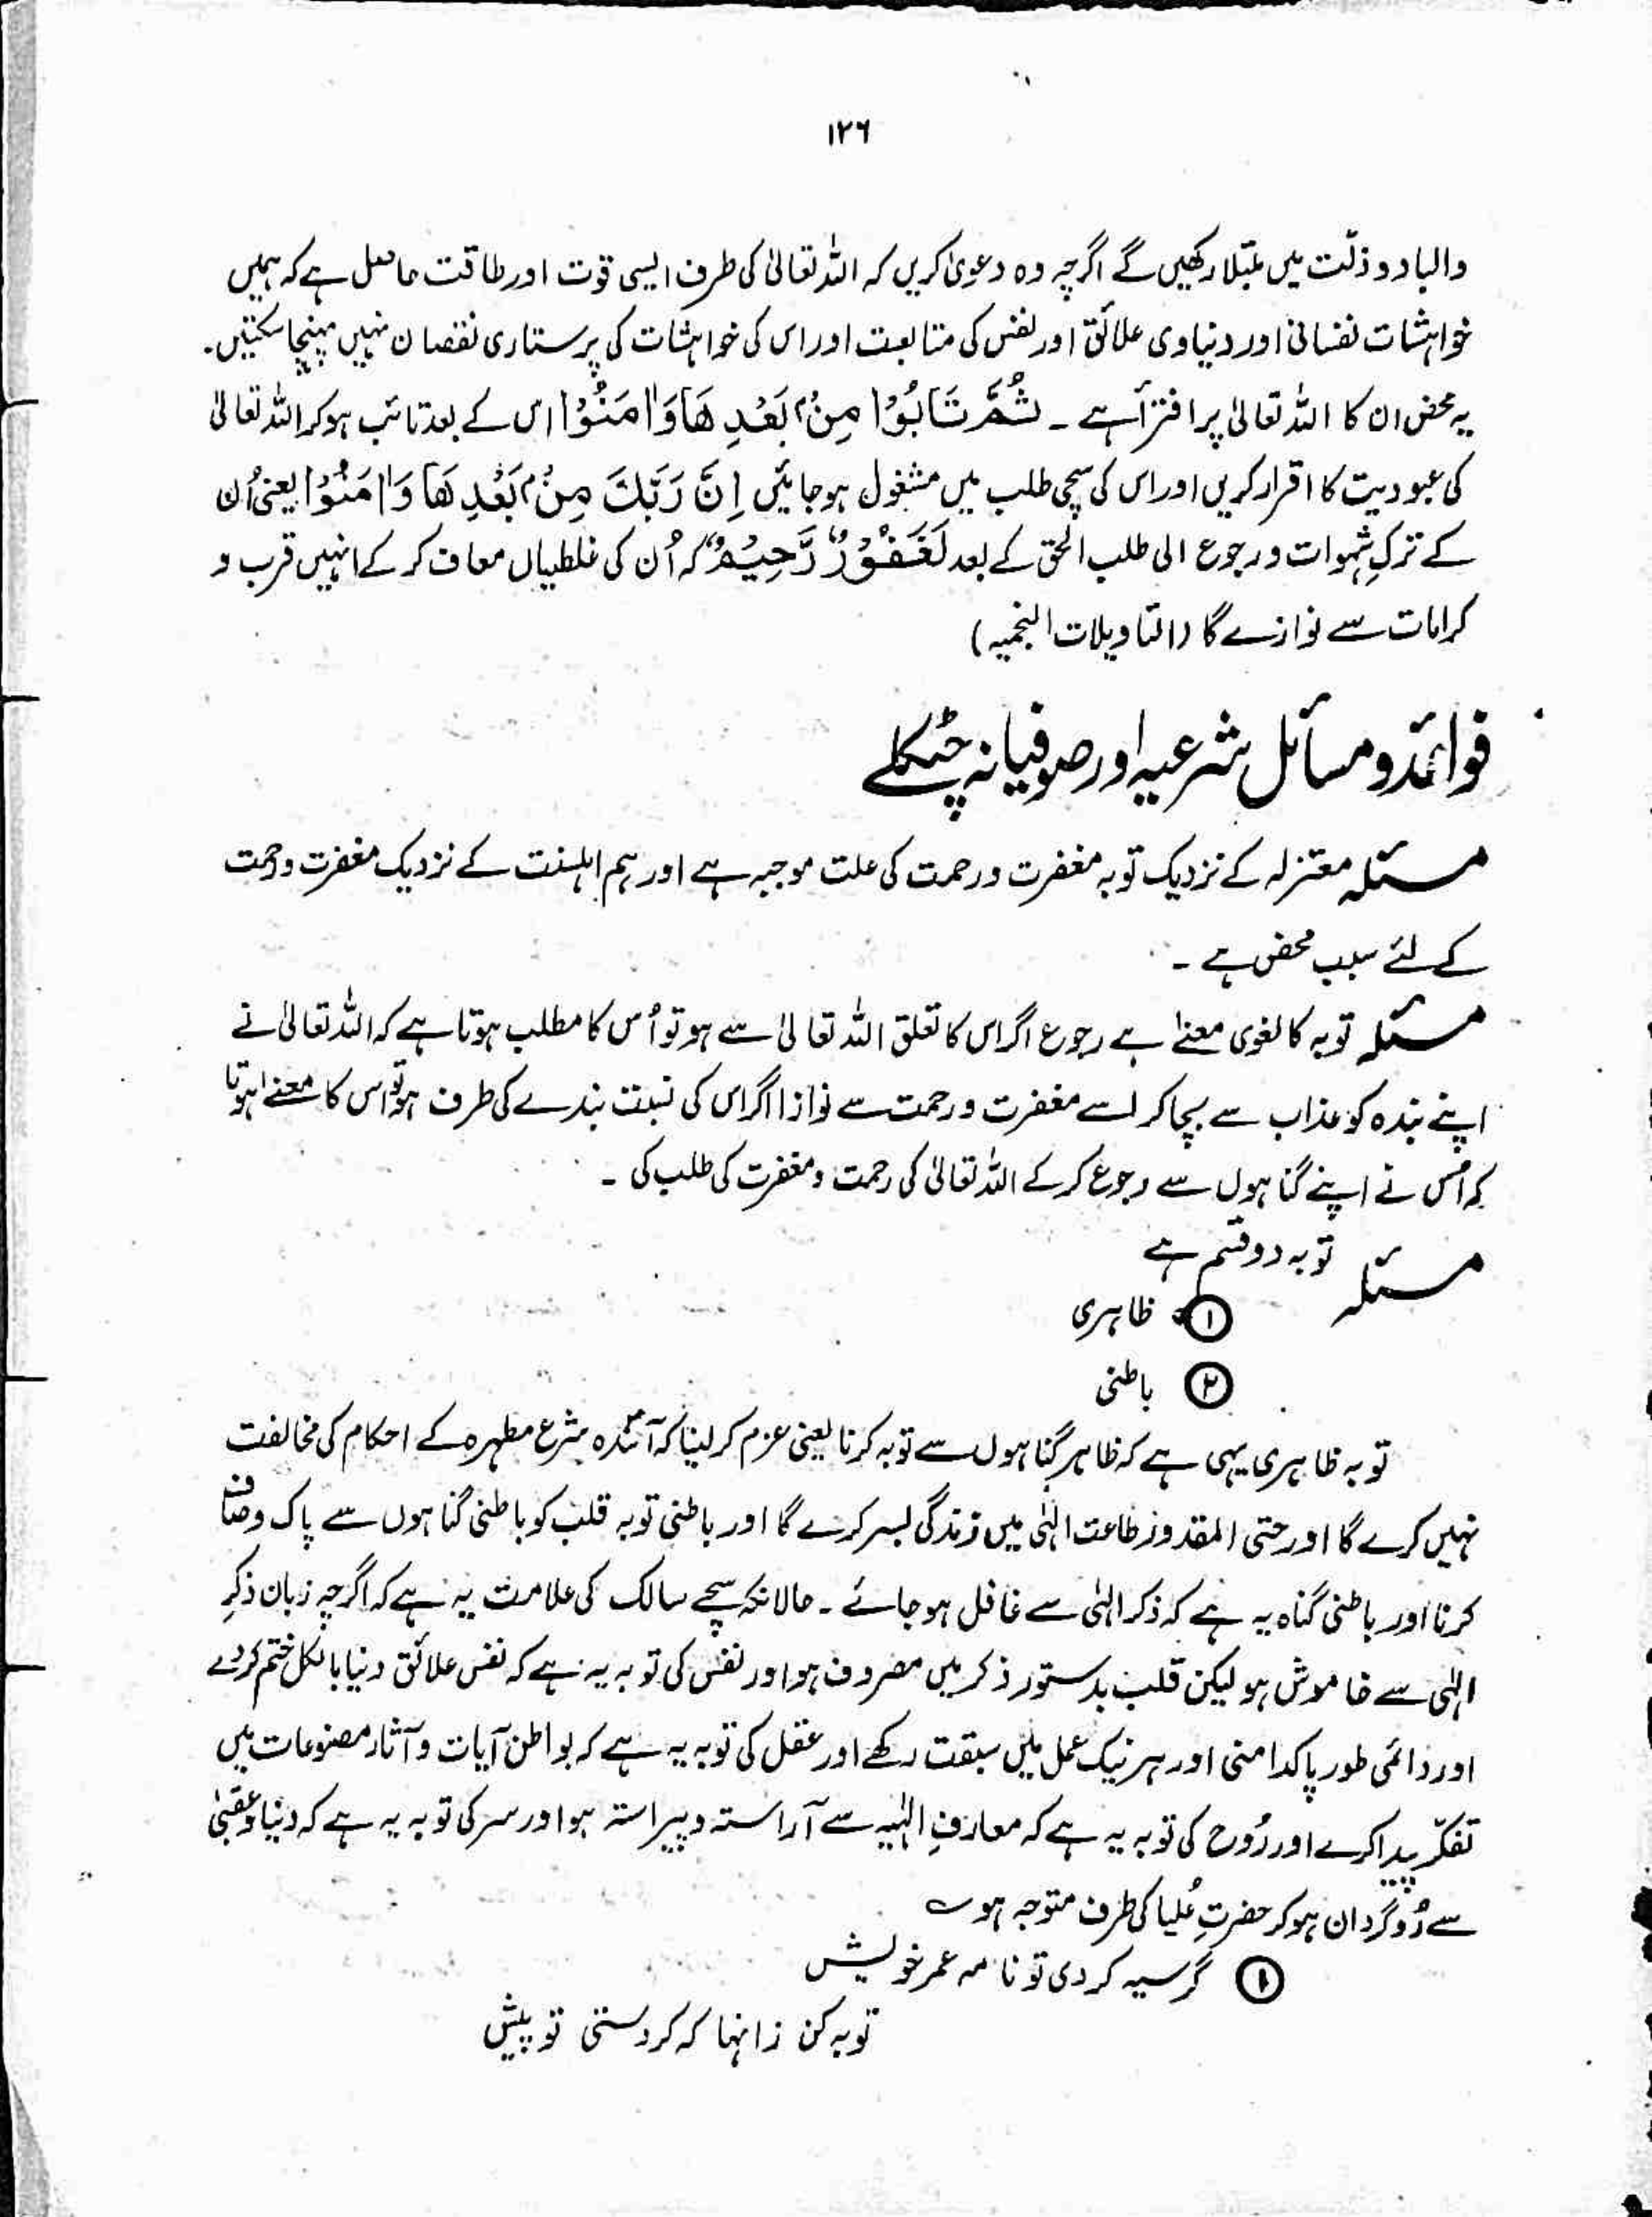 ۱۲۶
ذلّت میں مبتلا رکھیں گے اگرچہ وہ دعویٰ کریں کہ اللہ تعالیٰ کی طرف ایسی قوت اور طاقت حاصل ہے کہ ہمیں
خواہشات نفسانی اور دنیاوی علائق اور نفس کی متابعت اور اس کی خواہشات کی پرستاری نقصان نہیں پہنچا سکتیں۔
یہ محض ان کا اللہ تعالیٰ پر افترأ ہے ۔ ثُمَّ تَابُوْا مِنْۢ بَعْدِ هَا وَاٰمَنُوْٓا اس کے بعد تائب ہو کر اللہ تعالیٰ
کی عبودیت کا اقرار کریں اور اس کی سچی طلب میں مشغول ہو جائیں اِنَّ رَبَّكَ مِنْۢ بَعْدِ هَا وَاٰمَنُوْا یعنی اُن
کے ترکِ شہوات و رجوع الی طلب الحق کے بعد لَغَفُوْرٌ رَّحِیْمٌ کہ اُن کی غلطیاں معاف کر کے انہیں قرب و
کرامات سے نوازے گا (التاویلات النجمیہ)
فوائد و مسائل شرعیہ اور صوفیانہ چٹکلے
مسئلہ معتزلہ کے نزدیک توبہ مغفرت و رحمت کی علت موجبہ ہے اور ہم اہلسنت کے نزدیک مغفرت و رحمت
کے لئے سبب محض ہے ۔
مسئلہ توبہ کا لغوی معنےٰ ہے رجوع اگر اس کا تعلق اللہ تعالیٰ سے ہو تو اُس کا مطلب ہوتا ہے کہ اللہ تعالیٰ نے
اپنے بندہ کو عذاب سے بچا کر اسے مغفرت و رحمت سے نوازا اگر اس کی نسبت بندے کی طرف ہو تو اس کا معنےٰ ہوتا
کہ اُس نے اپنے گناہوں سے رجوع کر کے اللہ تعالیٰ کی رحمت و مغفرت کی طلب کی ۔
مسئلہ توبہ دو قسم ہے
① ظاہری
② باطنی
توبہ ظاہری یہی ہے کہ ظاہر گناہوں سے توبہ کرنا یعنی عزم کر لینا کہ آئندہ شرع مطہرہ کے احکام کی مخالفت
نہیں کرے گا اور حتی المقدور طاعت الہٰی میں زندگی بسر کرے گا اور باطنی توبہ قلب کو باطنی گناہوں سے پاک و صاف
کرنا اور باطنی گناہ یہ ہے کہ ذکر الہٰی سے غافل ہو جائے ۔ حالانکہ سچے سالک کی علامت یہ ہے کہ اگرچہ زبان ذکرِ
الہٰی سے خاموش ہو لیکن قلب بدستور ذکر میں مصروف ہو اور نفس کی توبہ یہ ہے کہ نفس علائق دنیا بالکل ختم کر دے
اور دائمی طور پاکدامنی اور ہر نیک عمل میں سبقت رکھے اور عقل کی توبہ یہ ہے کہ بواطن آیات و آثار مصنوعات میں
تفکّر پیدا کرے اور رُوح کی توبہ یہ ہے کہ معارفِ الہٰیہ سے آراستہ و پیراستہ ہو اور سر کی توبہ یہ ہے کہ دنیا و عقبیٰ
سے رُوگردان ہو کر حضرتِ عُلیا کی طرف متوجہ ہو ؎
① گر سیہ کردی تو نامہ عمر خویش
توبہ کن زانہا کہ کردستی تو پیش